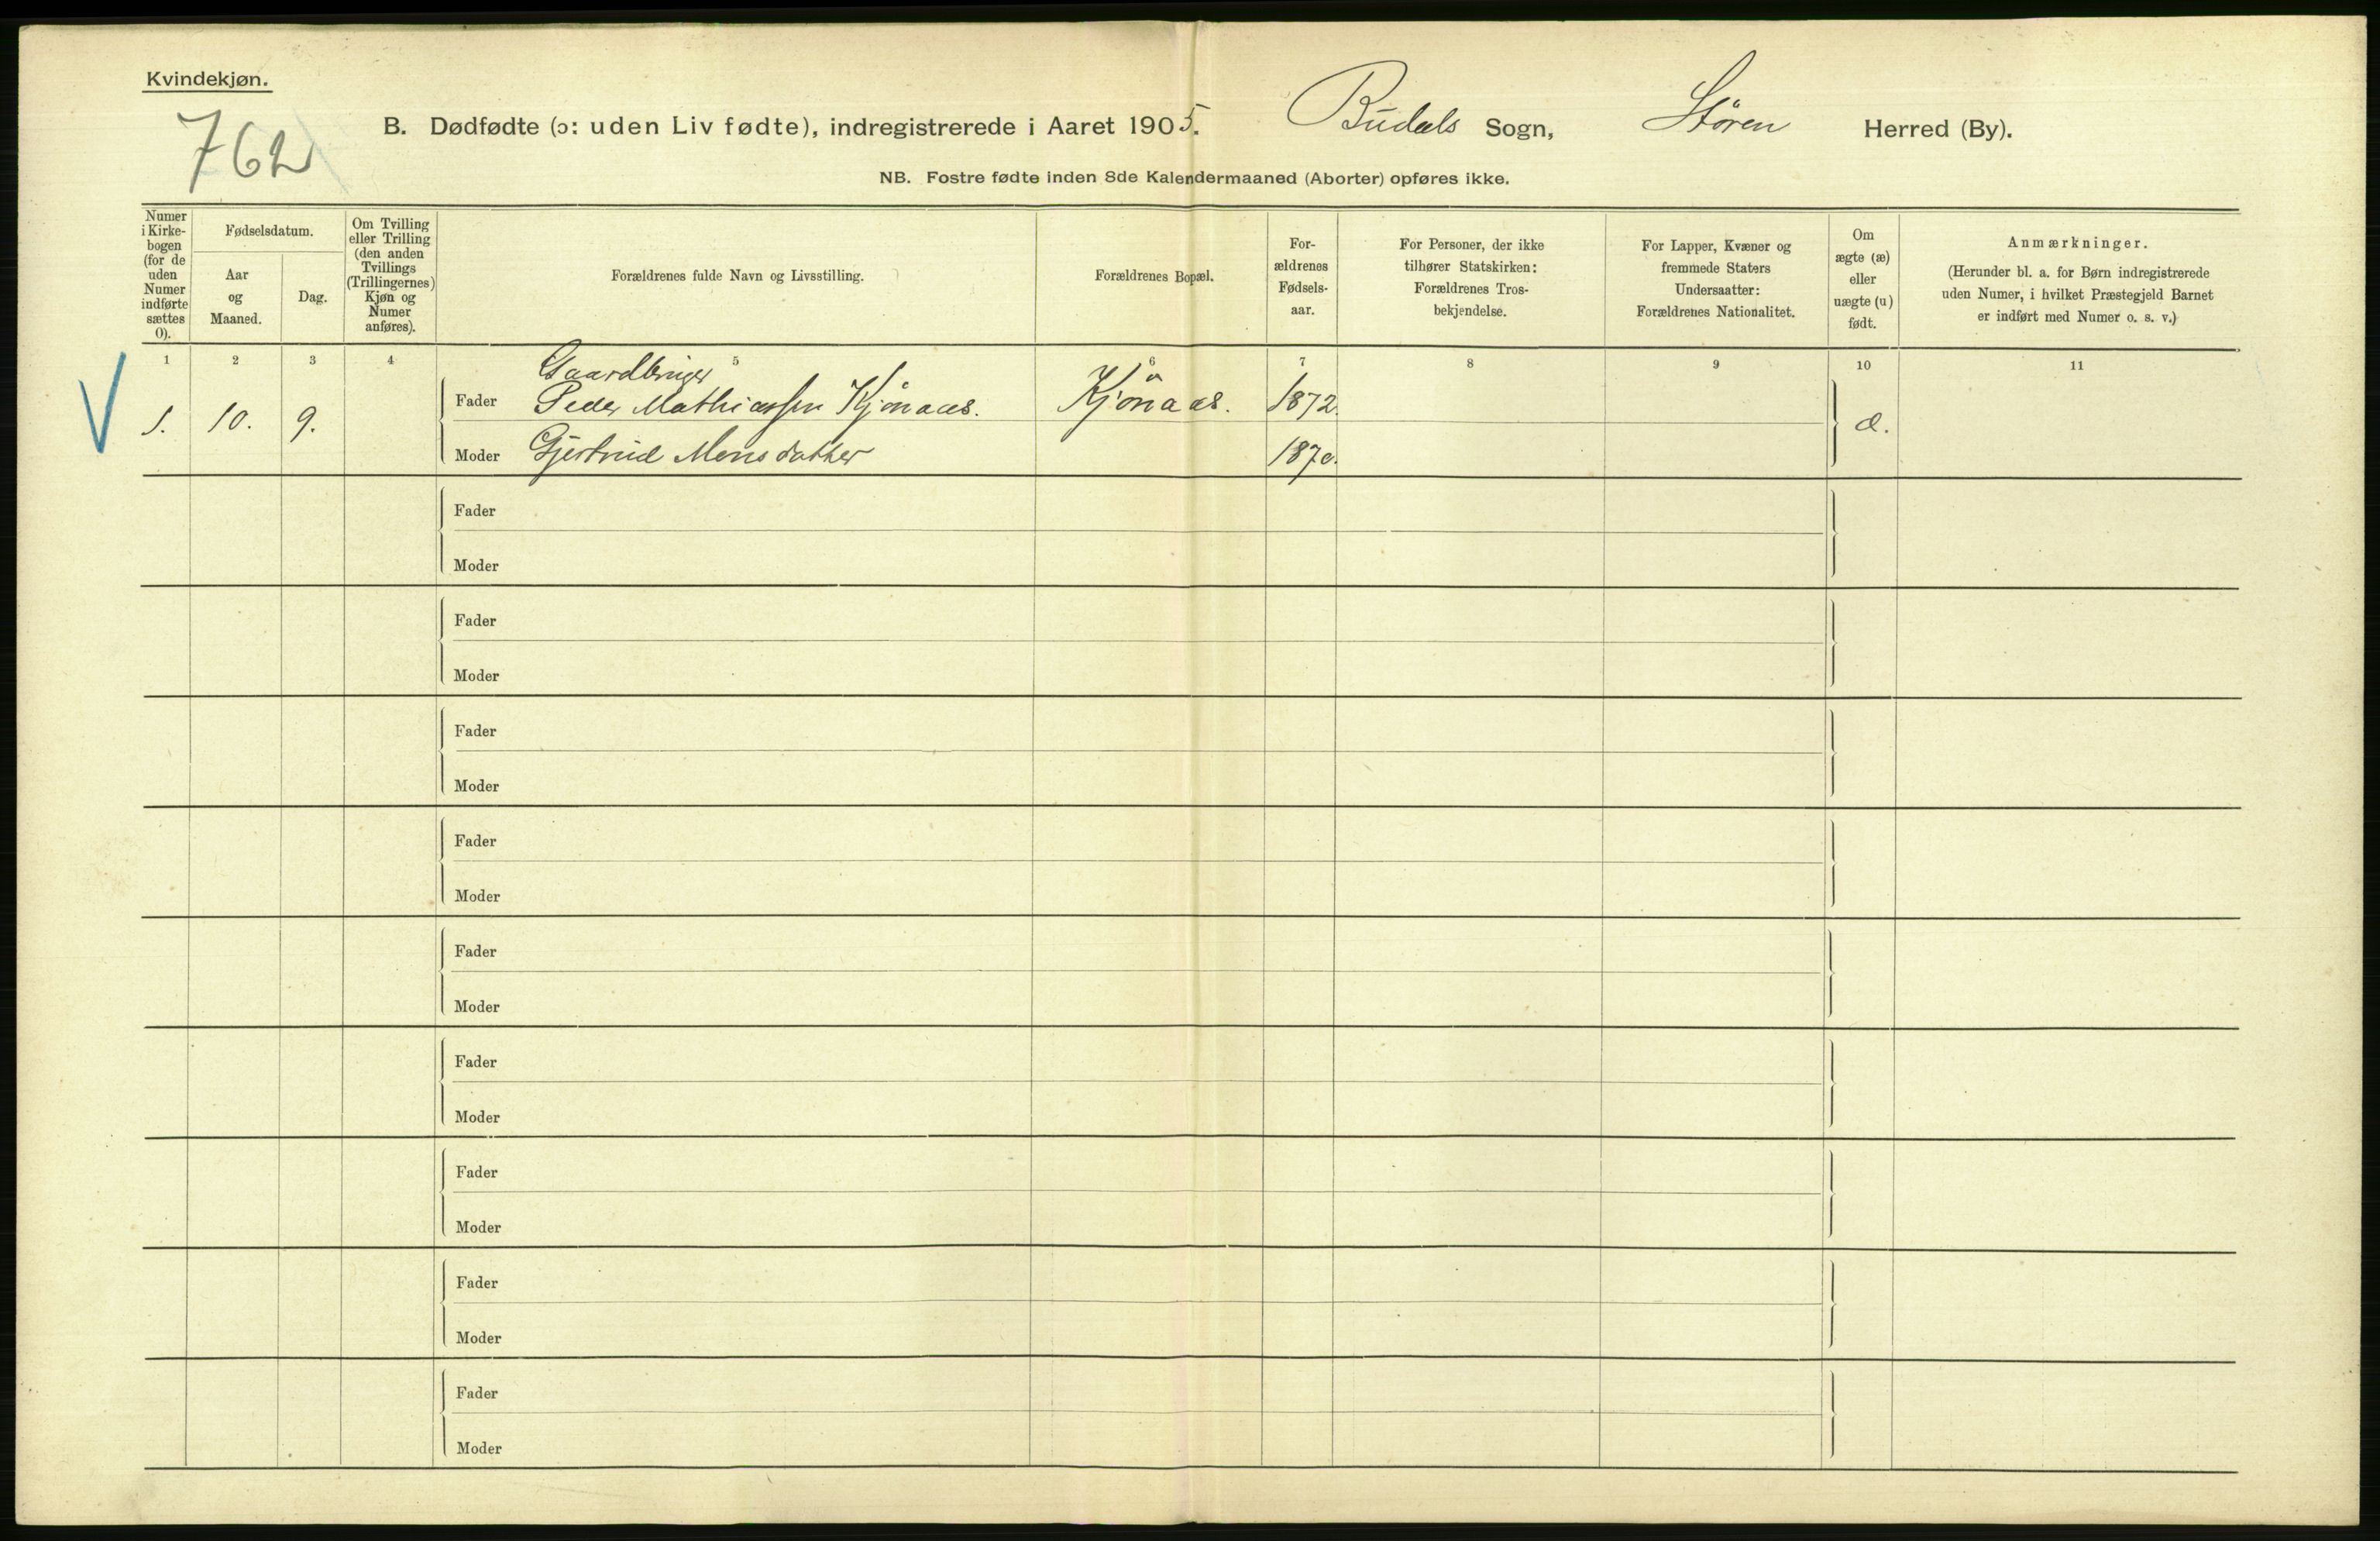 Kvindekjøn.
762
B. Dødfødte (ɔ: uden Liv fødte), indregistrerede i Aaret 1905. Budals Sogn, Støren Herred (By).
NB. Fostre fødte inden 8de Kalendermaaned (Aborter) opføres ikke.
Numer i Kirke-bogen (for de uden Numer indførte sættes 0).
Fødselsdatum.
Aar og Maaned.
Dag.
Om Tvilling eller Trilling (den anden Tvillings (Trillingernes) Kjøn og Numer anføres).
Forældrenes fulde Navn og Livsstilling.
Forældrenes Bopæl.
For-ældrenes Fødsels-aar.
For Personer, der ikke tilhører Statskirken: Forældrenes Tros-bekjendelse.
For Lapper, Kvæner og fremmede Staters Undersaatter: Forældrenes Nationalitet.
Om ægte (æ) eller uægte (u) født.
Anmærkninger.
(Herunder bl. a. for Børn indregistrerede uden Numer, i hvilket Præstegjeld Barnet er indført med Numer o. s. v.)
1 2 3 4 5 6 7 8 9 10 11
Gaardbruger
1. 10. 9. Fader Peder Mathiassen Kjönaas. Kjönaas. 1872. æ.
Moder Gjertrud Monsdatter 1870.
Fader
Moder
Fader
Moder
Fader
Moder
Fader
Moder
Fader
Moder
Fader
Moder
Fader
Moder
Fader
Moder
Fader
Moder